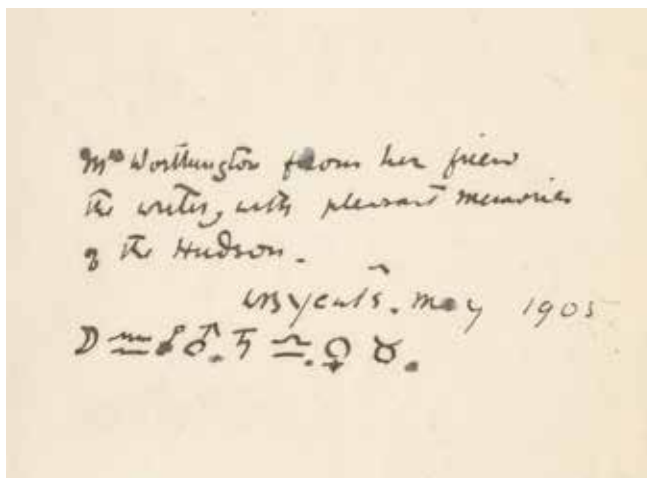 Mrs Worthington from her friend
the writer, with pleasant memories
of the Hudson.
WB Yeats. May 1905
☽ ♒ ☍ ♂. ♄ ♎. ♀ ♉.